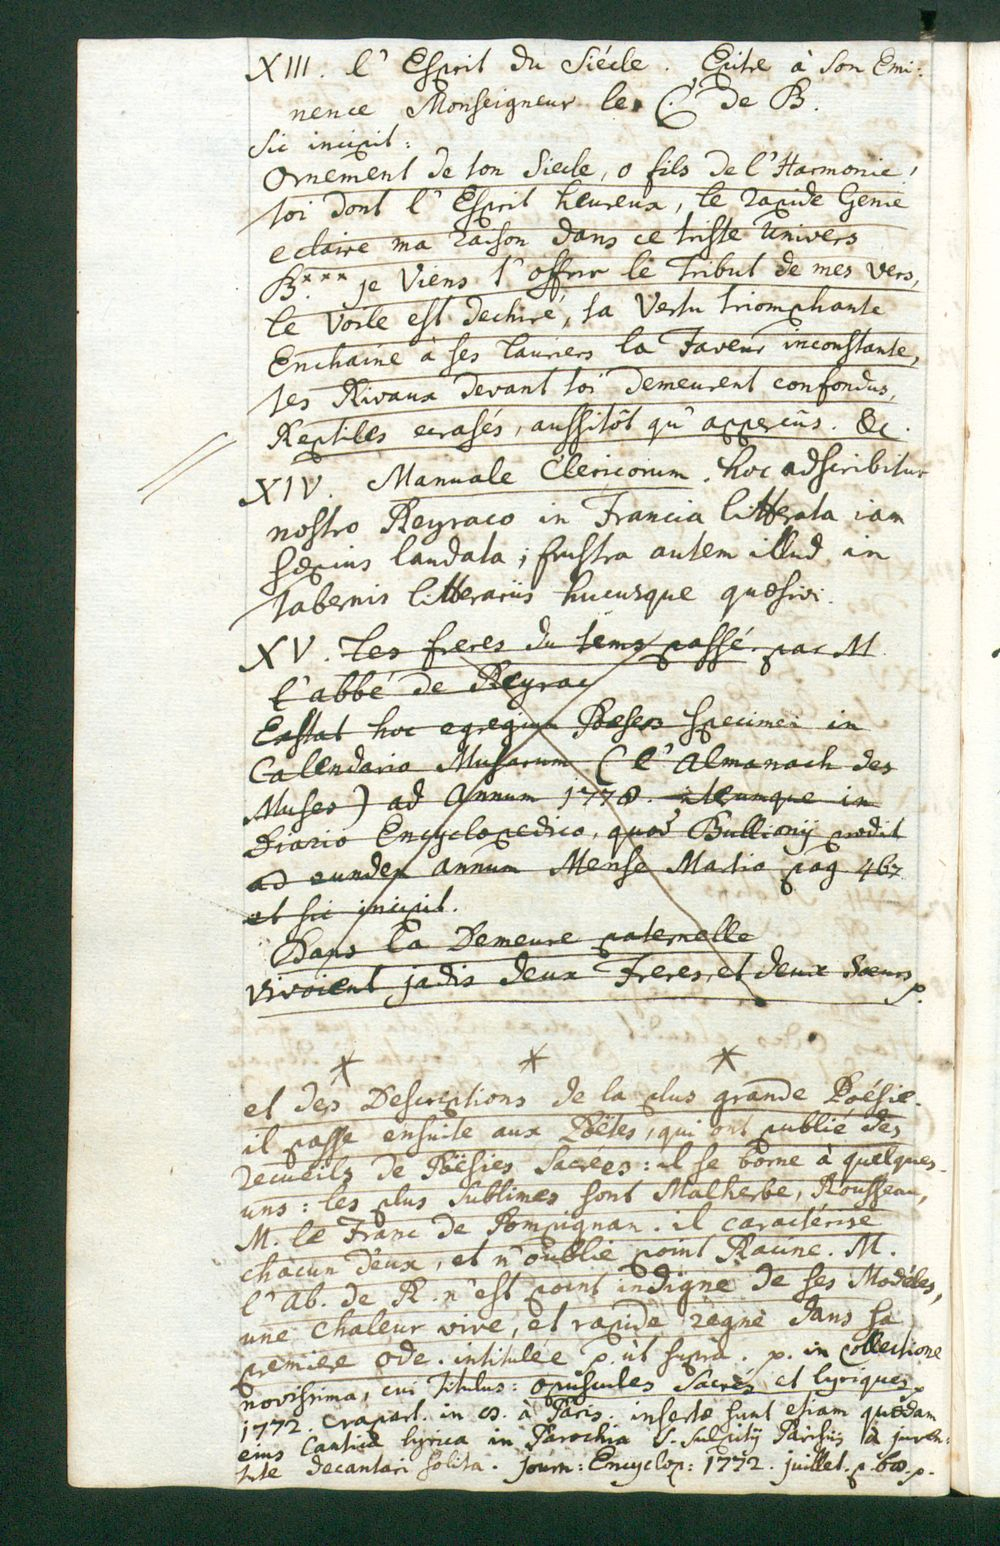 XIII. l' Esprit du Siécle. Epitre à Son Emi:
nence Monseigneur le C. de B.
Sic incipit:
Ornement de ton Siecle, o fils de l'Harmonie!
toi dont l' Esprit heureux, le rapide Genie
eclaire ma raison dans ce triste Univers
B.*** je Viens t' offrir le Tribut de mes vers,
le Voile est dechiré, ta Vertu triomphante
Enchaine à ses lauriers la Faveur inconstante,
tes Rivaux devant toi demeurent confondus,
Reptiles ecrasés, aussitôt qu' apperçûs. &c.
XIV. Manuale Clericorum. hoc adscribitur
nostro Reyraco in Francia litterata iam
sæpius laudata; frustra autem illud in
tabernis litterariis hucusque quæsivi.
XV. Les freres du tems passé. par M.
l'abbé de Reyrac
Extat hoc egregium Poeseos specimen in
Calendario Musarum (l' Almanach des
Muses) ad Annum 1778. iterumque in
Diario Encyclopedico, quod Bullionij prodit
ad eundem annum Mense Martio pag. 467
et sic incipit.
Dans la Demeure paternelle
vivoient jadis deux Freres, et deux Soeurs p.
* * *
et des Descriptions de la plus grande Poésie.
il passe ensuite aux Poëtes, qui ont publié des
recueils de Poësies Sacrées: il se borne à quelques-
uns: les plus Sublimes sont Malherbe, Rousseau,
M. le Franc de Pompignan. il caractérise
chacun d'eux, et n'oublie point Racine. M.
l' Ab. de R. n'est point indigne de ses Modéles,
une chaleur vive, et rapide règne dans sa
premiere ode. intitulee p. ut supra. p. in collectione
novissima, cui Titulus: opuscules Sacrés et lyriques p.
1772. Crapart. in 8. à Paris. insertæ sunt etiam quædam
eius Cantica lyrica in Parochia S. Sulpitij Parisiis à juven:
tute decantari solita. Journ: Encyclop: 1772. juillet. p. p.